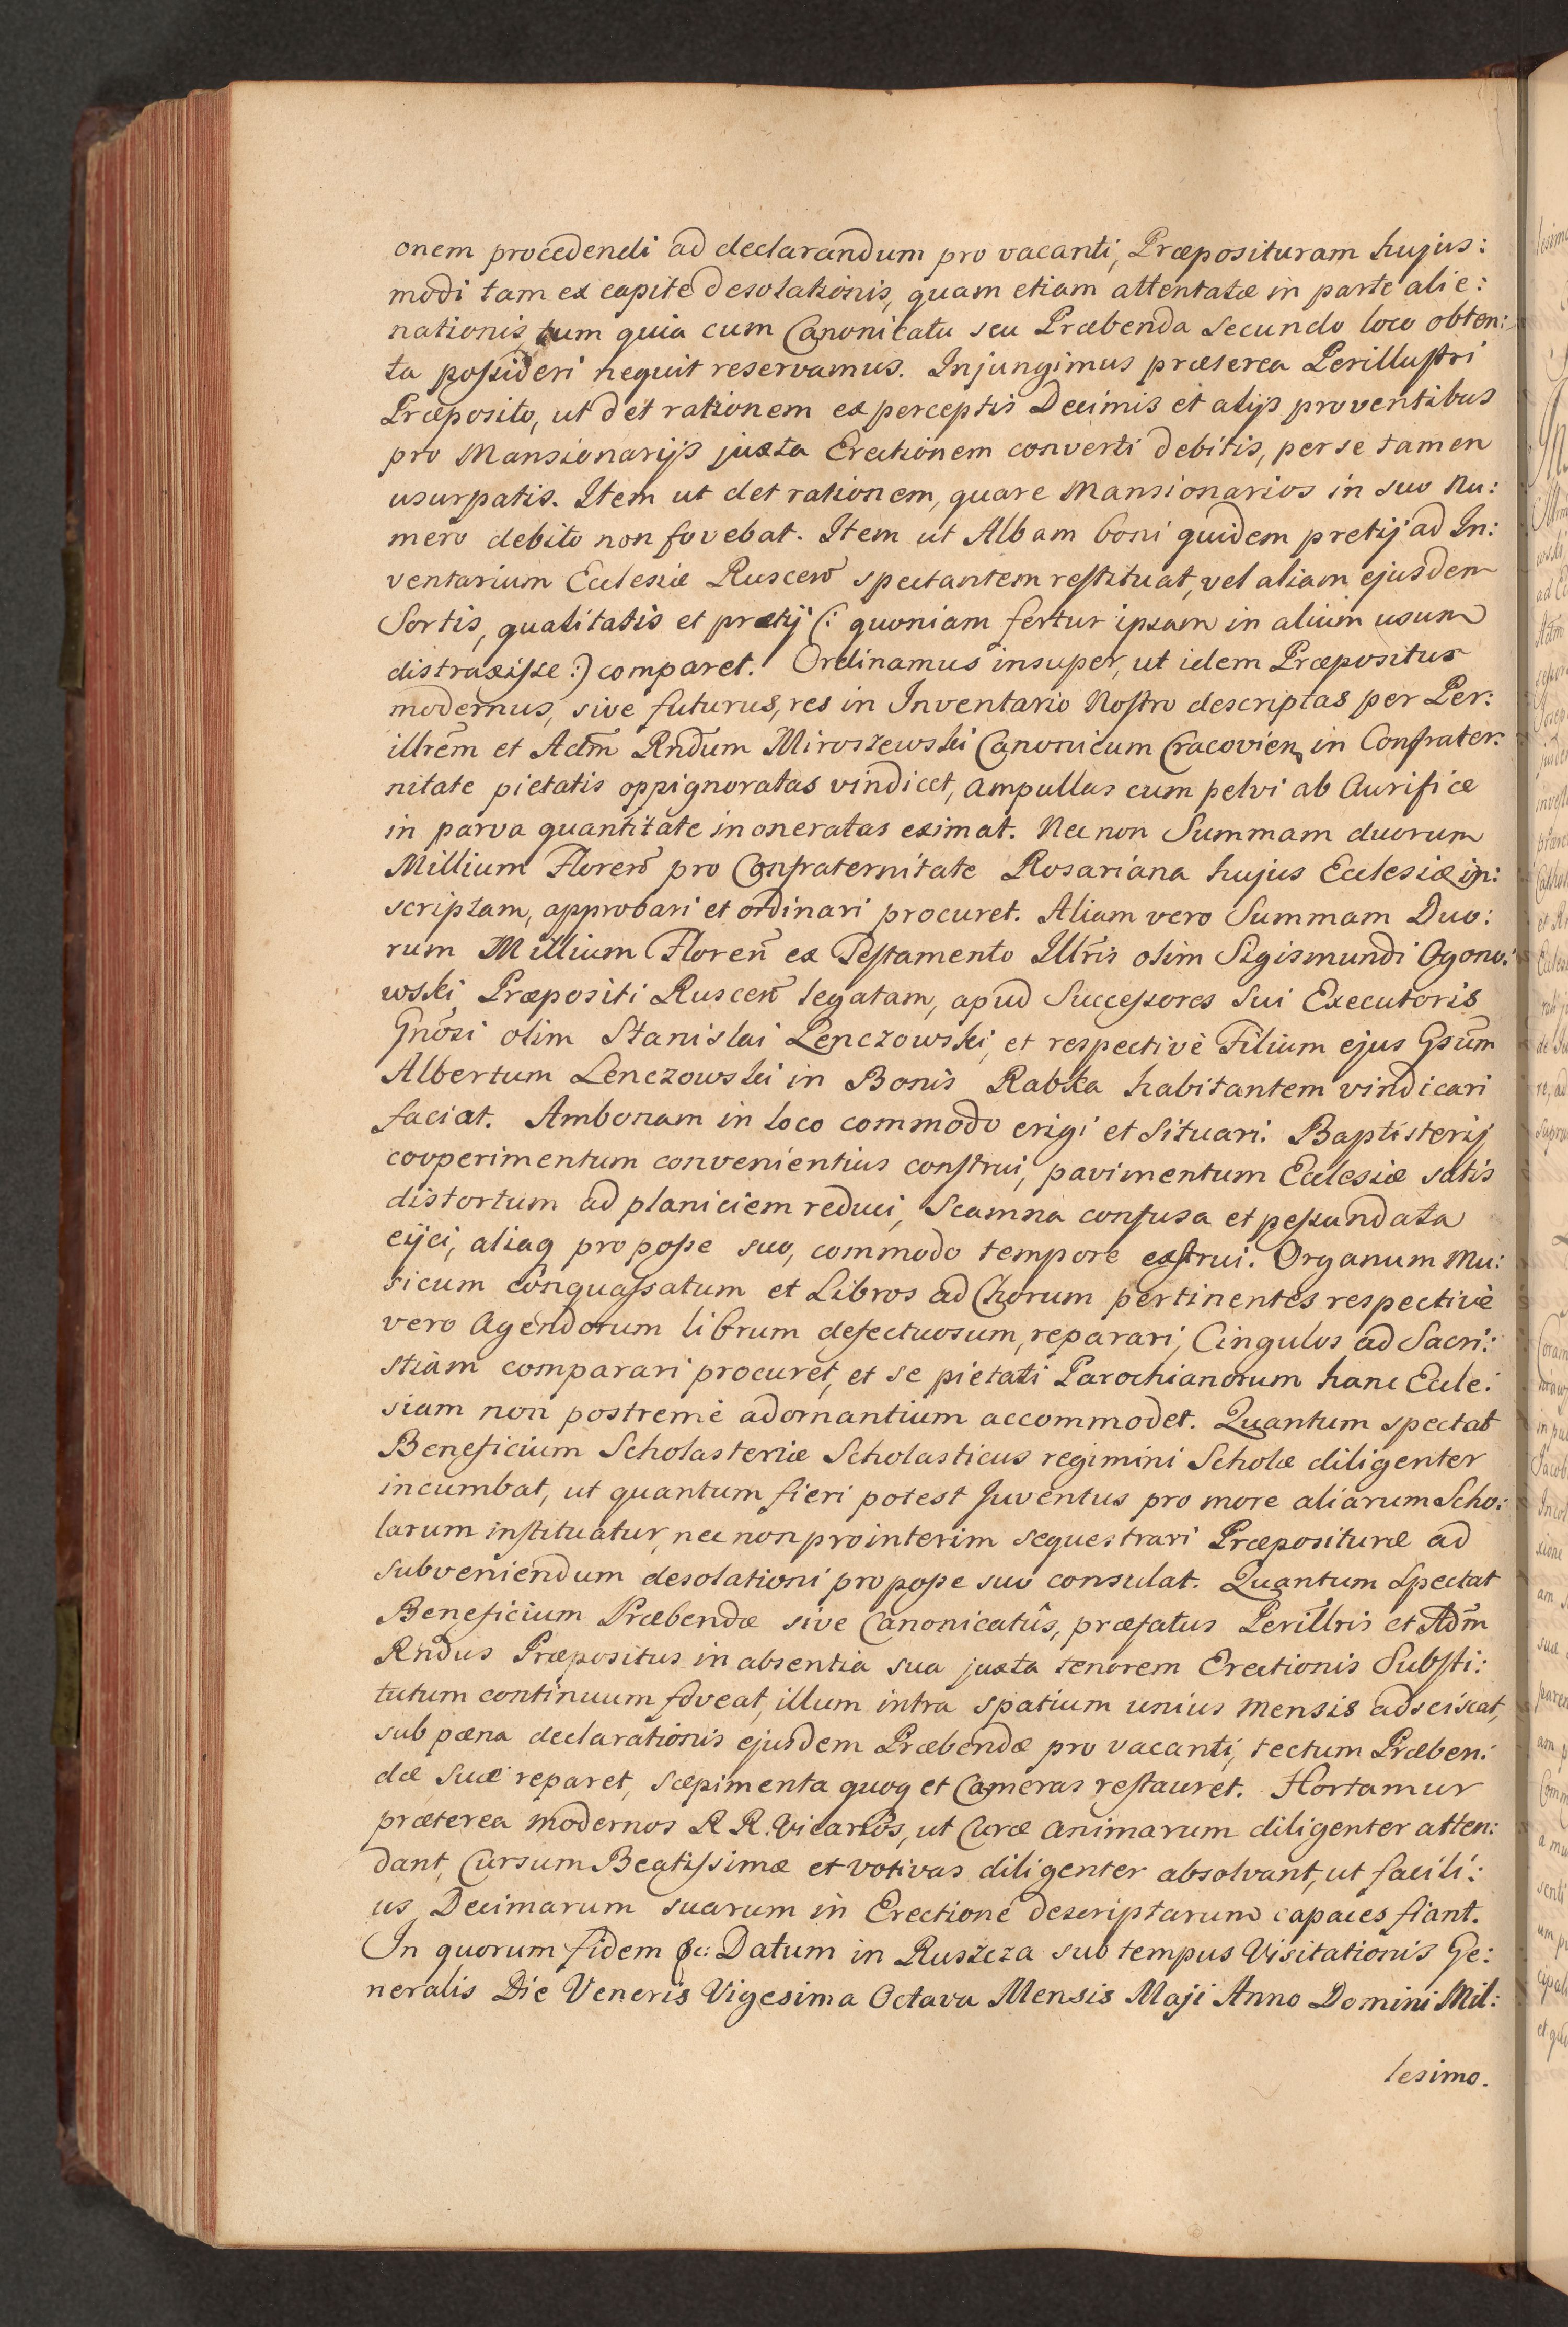 onem procedendi ad declarandum pro vacanti, Præposituram hujus:
modi tam ex capite desolationis, quam etiam attentatæ in parte alie:
nationis, tum quia cum Canonicatu seu Præbenda secundo loco obten:
ta possideri nequit reservamus. Injungimus præterea Perillustri
Præposito, ut det rationem ex perceptis Decimis et alijs proventibus
pro Mansionarijs juxta Erectionem converti debitis, per se tamen
usurpatis. Item ut det rationem, quare Mansionarios in suo Nu:
mero debito non fovebat. Item ut Albam boni quidem pretij ad In:
ventarium Ecclesiæ Ruscen̄ spectantem restituat, vel aliam ejusdem
Sortis, qualitatis et prætij (: quoniam fertur ipsam in alium usum
distraxisse :) comparet. Ordinamus insuper, ut idem Præpositus
modernus, sive futurus, res in Inventario Nostro descriptas per Per:
illrem̄ et Adm̄ Rnd̄um Miroszewski Canonicum Cracovien̄ in Confrater:
nitate pietatis oppignoratas vindicet, ampullas cum pelvi ab Aurifice
in parva quantitate inoneratas eximat. Nec non Summam duorum
Millium Floren̄ pro Confraternitate Rosariana hujus Ecclesiæ in:
scriptam, approbari et ordinari procuret. Aliam vero Summam Duo:
rum Millium Floren̄ ex Testamento Illr̄is olim Sigismundi Ogono:
wski Præpositi Ruscen̄ legatam, apud Successores sui Executoris
Gn̄osi olim Stanislai Lenczowski, et respectivè Filium ejus Gsum̄
Albertum Lenczowski in Bonis Rabka habitantem vindicari
faciat. Ambonam in loco commodo erigi et situari. Baptisterij
cooperimentum convenientius construi, pavimentum Ecclesiæ satis
distortum ad planiciem reduci, Scamna confusa et pessundata
eijci, aliaq pro posse suo, commodo tempore exstrui. Organum Mu:
sicum conquassatum et Libros ad Chorum pertinentes respectivè
vero Agendorum librum defectuosum, reparari, Cingulos ad Sacri:
stiam comparari procuret, et se pietati Parochianorum hanc Eccle:
siam non postremè adornantium accommodet. Quantum spectat
Beneficium Scholasteriæ Scholasticus regimini Scholæ diligenter
incumbat, ut quantum fieri potest Juventus pro more aliarum Scho:
larum instituatur, nec non prointerim sequestrari Præposituræ ad
subveniendum desolationi pro posse suo consulat. Quantum Spectat
Beneficium Præbendæ sive Canonicatûs, præfatus Perillr̄is et Adm̄
Rnd̄us Præpositus in absentia sua juxta tenorem Erectionis Substi:
tutum continuum foveat, illum intra spatium unius mensis adsciscat,
sub pæna declarationis ejusdem Præbendæ pro vacanti, tectum Præben:
dæ suæ reparet, sæpimenta quoq et Cameras restauret. Hortamur
præterea modernos R R. Vicarios, ut Curæ animarum diligenter atten:
dant, Cursum Beatissimæ et votivas diligenter absolvant, ut facili:
us Decimarum suarum in Erectione descriptarum capaces fiant.
In quorum fidem &c: Datum in Ruszcza sub tempus Visitationis Ge:
neralis Die Veneris Vigesima Octava Mensis Maji Anno Domini Mil:
lesimo.